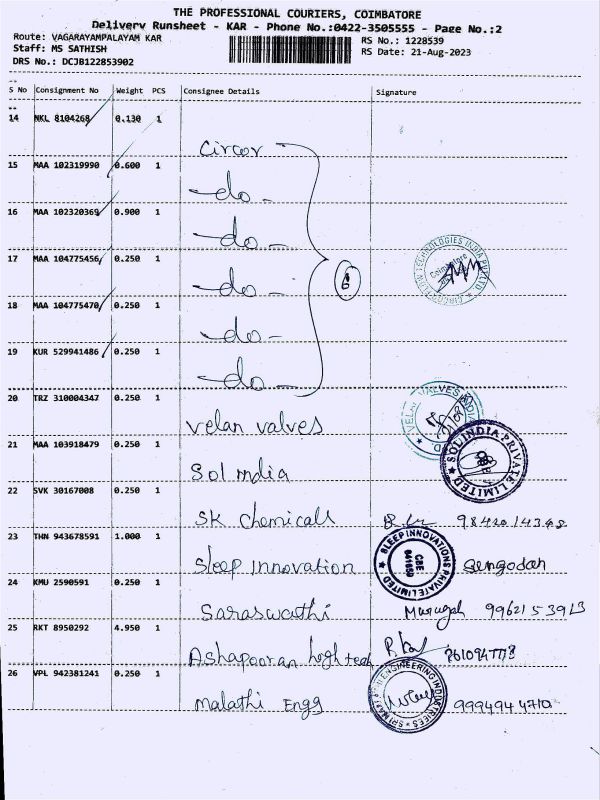 THE PROFESSIONAL COURIERS, COIMBATORE
Delivery Runsheet - KAR - Phone No.:0422-3505555 - Page No.:2
Route: VAGARAYAMPALAYAM KAR
RS No.: 1228539
Staff: MS SATHISH
RS Date: 21-Aug-2023
DRS No.: DCJB122853902
S No Consignment No Weight PCS Consignee Details Signature
14 NKL 8104268 0.130 1 Circor
15 MAA 102319990 0.600 1 -do-
16 MAA 102320369 0.900 1 -do-
17 MAA 104775456 0.250 1 -do-
18 MAA 104775470 0.250 1 -do-
19 KUR 529941486 0.250 1 -do-
6
TECHNOLOGIES INDIA PVT LTD
Coimbatore
20 TRZ 310004347 0.250 1 Velan Valves
VELAN VALVES INDIA
21 MAA 103918479 0.250 1 Sol India
SOL INDIA PRIVATE LIMITED
22 SVK 30167008 0.250 1 SK Chemicals
23 THN 943678591 1.000 1 Sleep Innovation Sengodan
SLEEP INNOVATIONS PRIVATE LIMITED
CBE
641659
24 KMU 2590591 0.250 1 Saraswathi Murugah
25 RKT 8950292 4.950 1 Ashapooran high tech
26 VPL 942381241 0.250 1 Malathi Engg 9994944710
ENGINEERING INDUSTRIES